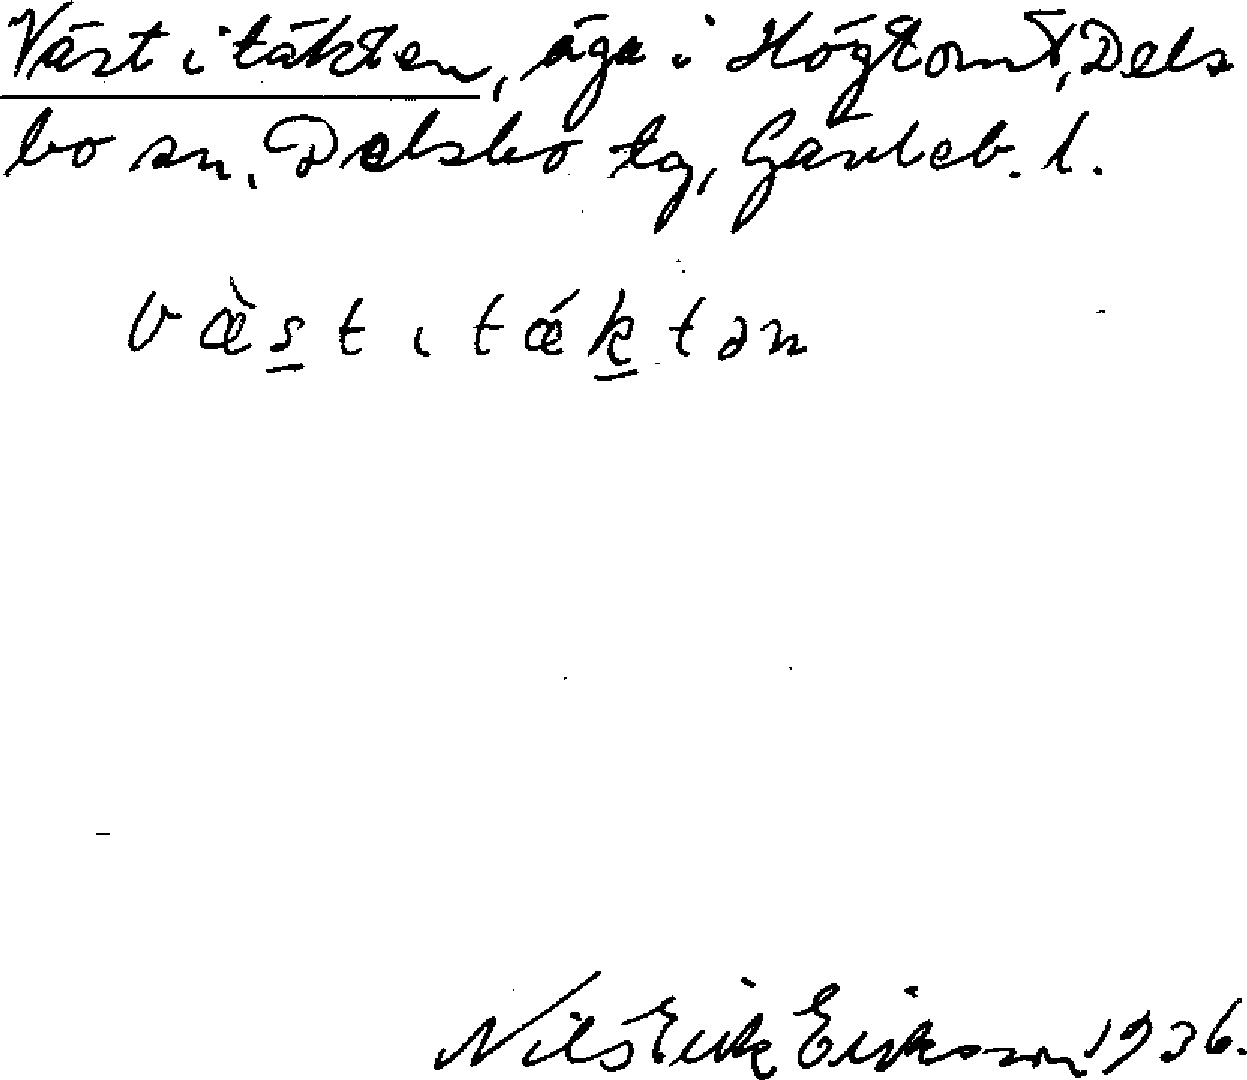 Väst i täkten, äga i Högtomt, Dels
bo sn. Delsbo tg, Gävleb. l.
v æ̀ s̲ t ɩ t ǽ k̲ t ə n
Nils Erik Erikson 1936.